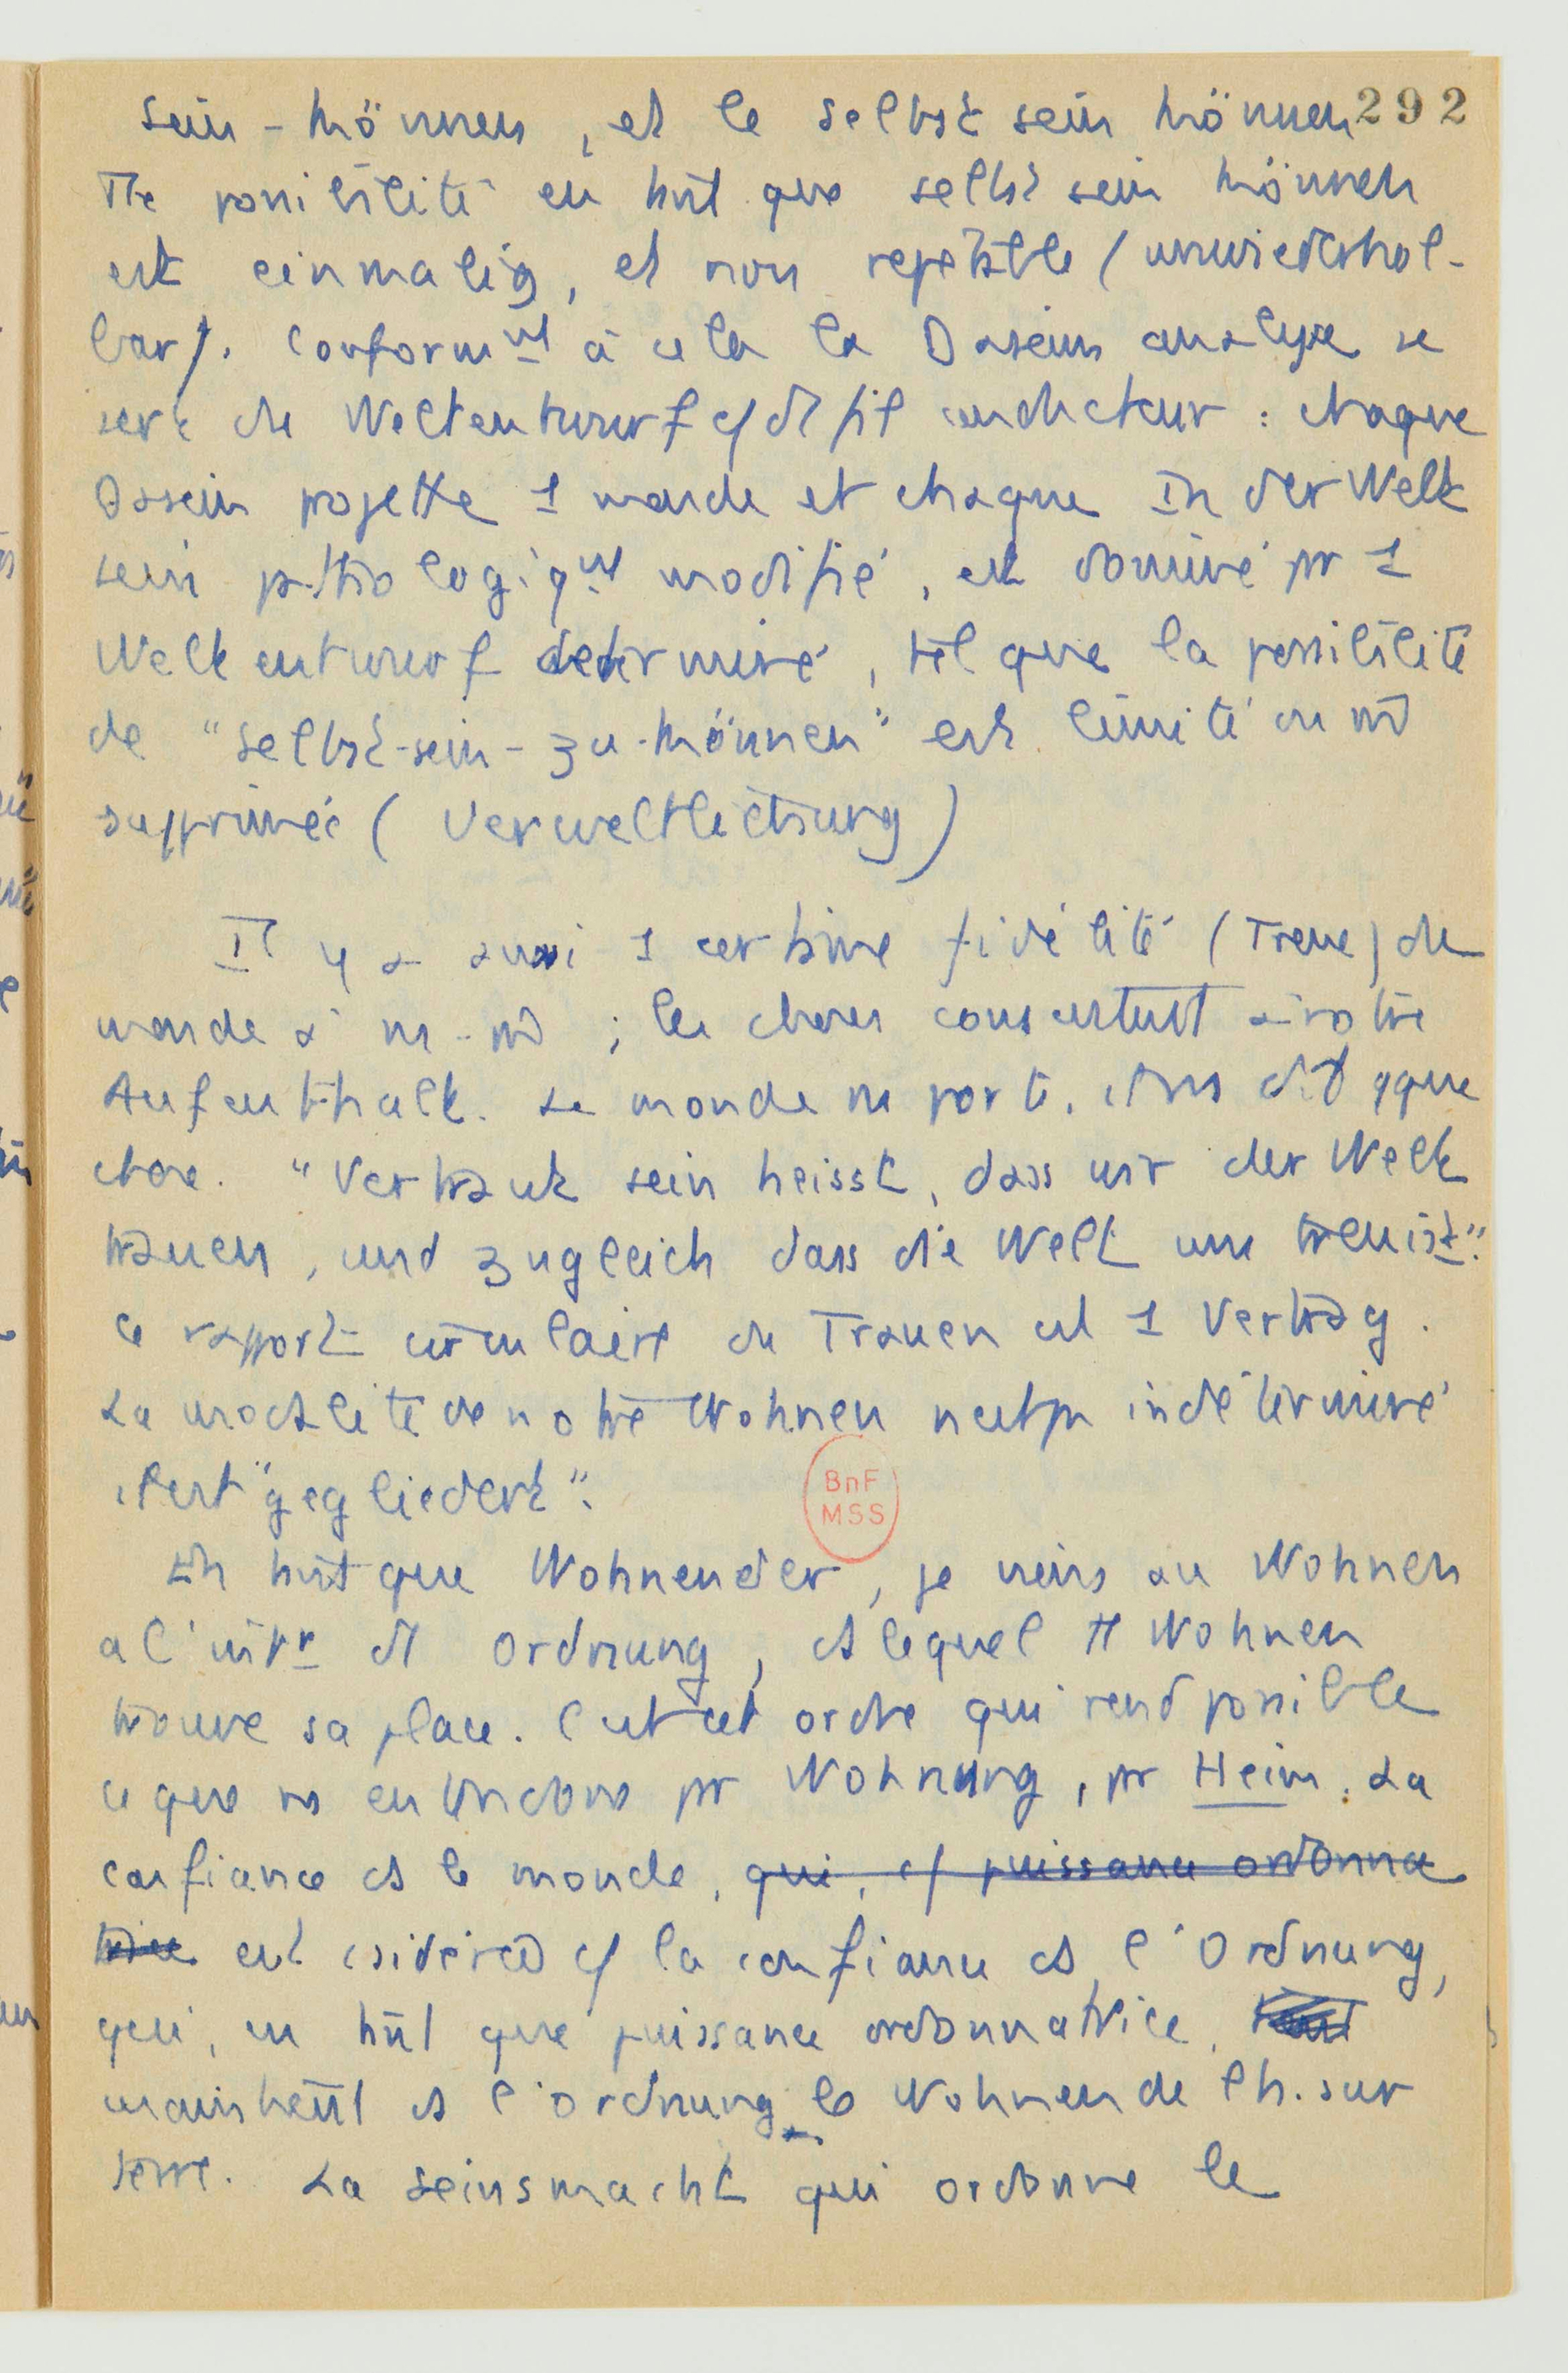 sein-können, et le selbst sein können 292
Tte possibilité en tant que selbst sein können
est einmalig, et non répétable (unwiederhol-
bar). Conformmt à cela la Daseins analyse se
sert du Weltentwurf c/ de fil conducteur : chaque
Dasein projette 1 monde et chaque In der Welt
sein pathologiqmt modifié, est dominé pr 1
Weltentwurf determiné, tel que la possibilité
de "selbst-sein-zu-können" est limité ou m̄
supprimée (Verweltlichung)
Il y a aussi 1 certaine fidélité (Treue) du
monde à ns-m̄ ; les choses consentent à notre
Aufenthalt. Le monde ns porte, ds qque
chose. "Vertraut sein heisst, dass wir der Welt
trauen, und zugleich dass die Welt uns treu ist".
Ce rapport circulaire du Trauen est 1 Vertrag.
La modalité de notre Wohnen n'est pas indéterminé
il est "gegliedert".
En tant que Wohnender, je viens au Wohnen
a l'intr d'1 Ordnung, ds lequel tt Wohnen
trouve sa place. C'est cet ordre qui rend possible
ce que ns entendons pr Wohnung, pr Heim. La
confiance ds le monde, qui, c/ puissance ordonna
trice est csidérée c/ la confiance ds l'Ordnung,
qui, en tant que puissance ordonnatrice,
maintient ds l'Ordnung le Wohnen de l'h. sur
terre. La Seinsmacht qui ordonne le
BnF
MSS